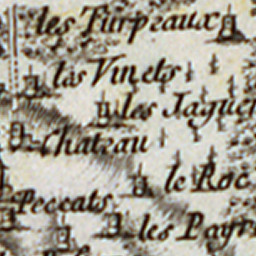 les Turpeaux
las Vinets
les Jaquet
Chateau
le Roc
Peccats
les Payr